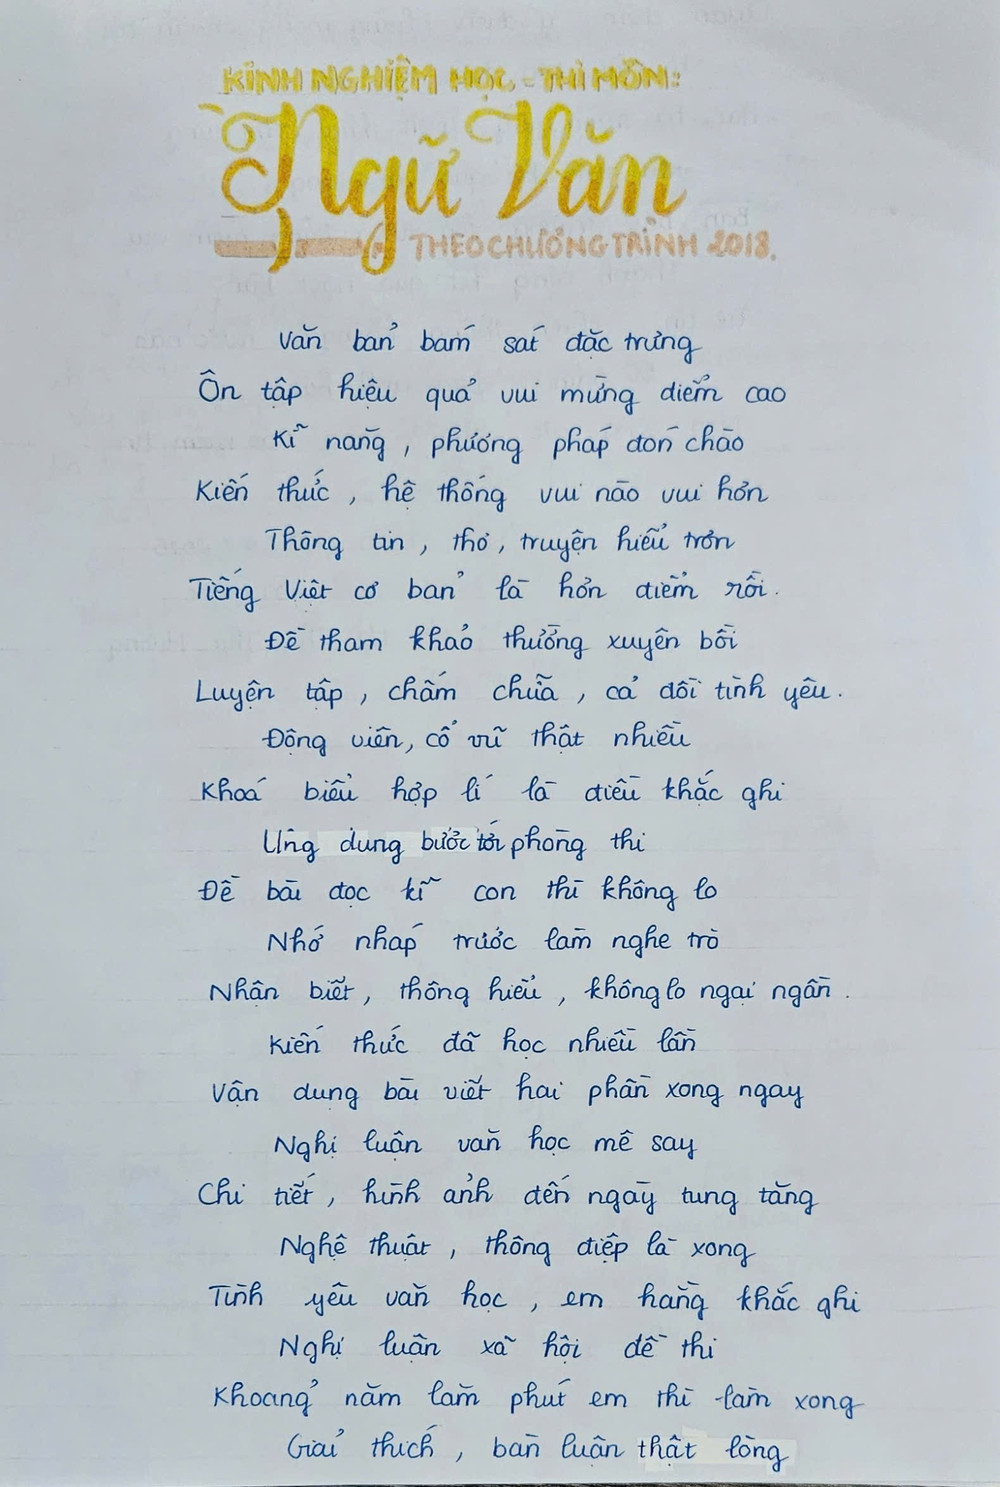 KINH NGHIỆM HỌC - THI MÔN:
Ngữ Văn
THEO CHƯƠNG TRÌNH 2018.
Văn bản bám sát đặc trưng
Ôn tập hiệu quả vui mừng điểm cao
Kĩ năng, phương pháp đón chào
Kiến thức, hệ thống vui nào vui hơn
Thông tin, thơ, truyện hiểu trơn
Tiếng Việt cơ bản là hơn điểm rồi.
Đề tham khảo thường xuyên bồi
Luyện tập, chấm chữa, cả đôi tình yêu.
Động viên, cổ vũ thật nhiều
Khoá biểu hợp lí là điều khắc ghi
Ung dung bước tới phòng thi
Đề bài đọc kĩ con thì không lo
Nhớ nháp trước làm nghe trò
Nhận biết, thông hiểu, không lo ngại ngần.
Kiến thức đã học nhiều lần
Vận dụng bài viết hai phần xong ngay
Nghị luận văn học mê say
Chi tiết, hình ảnh đến ngay tung tăng
Nghệ thuật, thông điệp là xong
Tình yêu văn học, em hằng khắc ghi
Nghị luận xã hội đề thi
Khoảng năm lăm phút em thì làm xong
Giải thích, bàn luận thật lòng